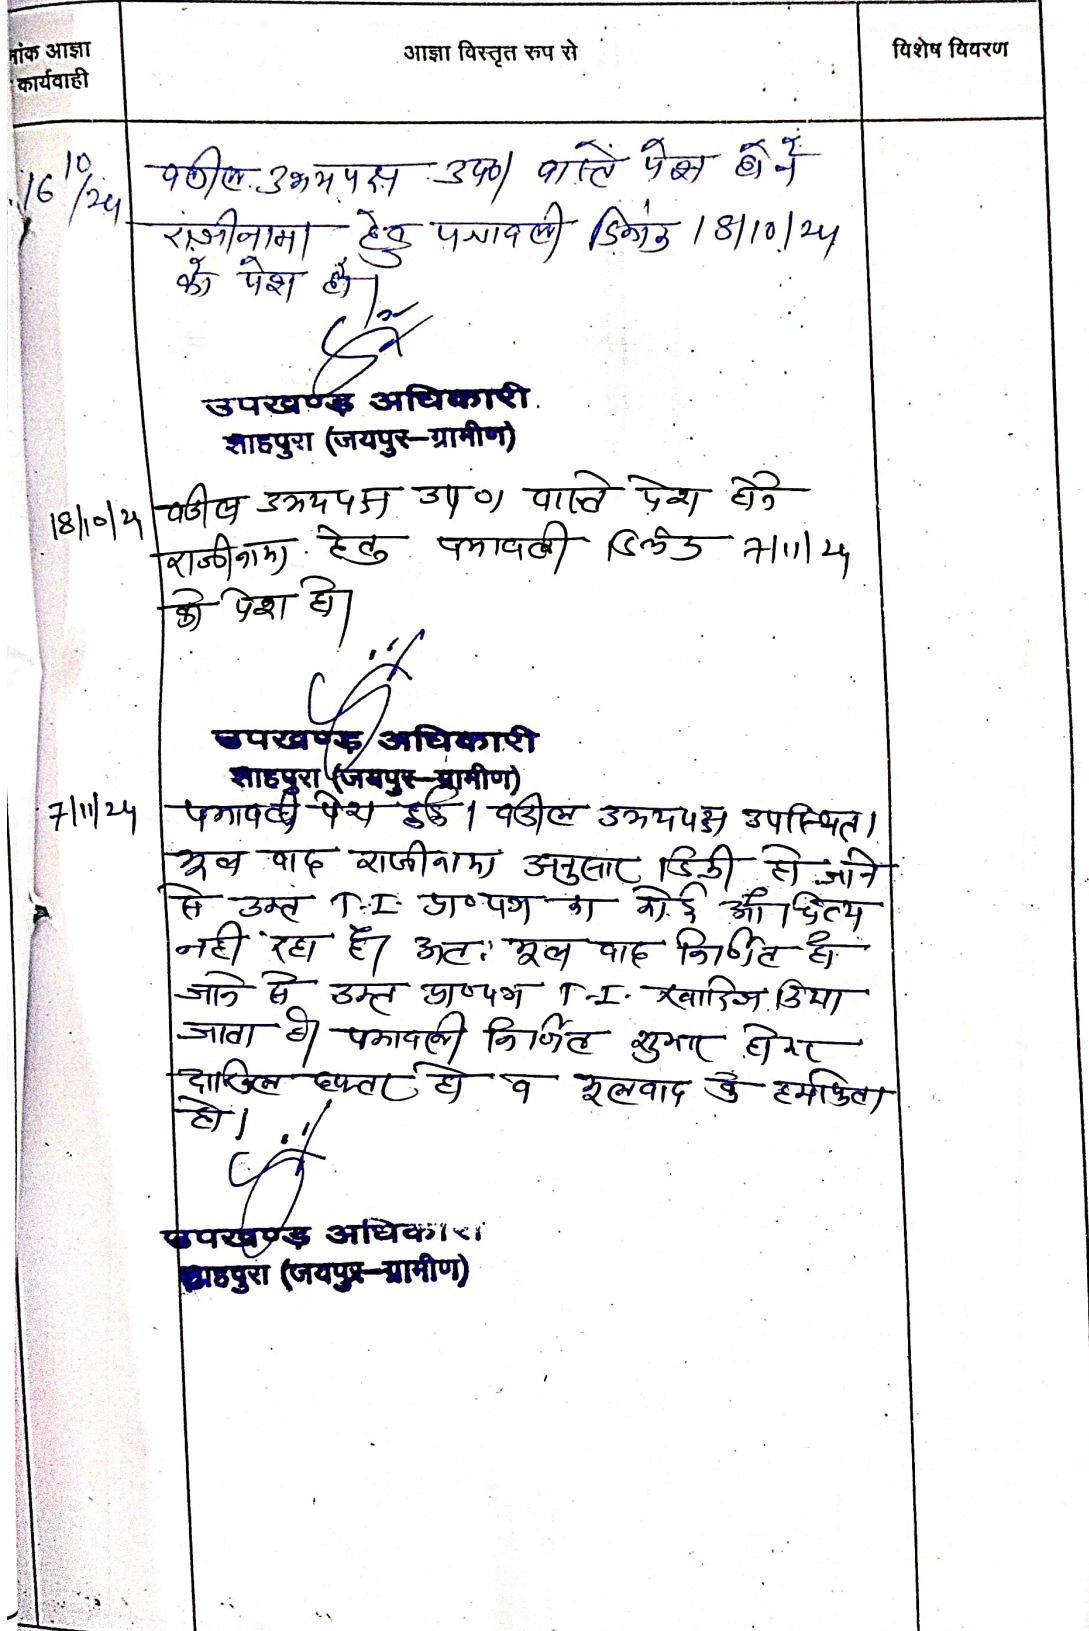 नांक आज्ञा
कार्यवाही
आज्ञा विस्तृत रुप से
विशेष विवरण
16/10/24
वकील उभयपक्ष उप० वास्ते पेश होने
राजीनामा हेतु पत्रावली दिनांक 18/10/24
को पेश हो।
उपखण्ड अधिकारी
शाहपुरा (जयपुर-ग्रामीण)
18/10/24
वकील उभयपक्ष उप० वास्ते पेश होने
राजीनामा हेतु पत्रावली दिनांक 7/11/24
को पेश हो।
उपखण्ड अधिकारी
शाहपुरा (जयपुर-ग्रामीण)
7/11/24
पत्रावली पेश हुई। वकील उभयपक्ष उपस्थित।
मूल वाद राजीनामा अनुसार डिक्री हो जाने
से उक्त T.I. प्रा०पत्र का कोई औचित्य
नही रहा है। अतः मूल वाद निर्णित हो
जाने से उक्त प्रा०पत्र T.I. खारिज किया
जाता है। पत्रावली निर्णित शुमार होकर
दाखिल दफ्तर हो व मूलवाद के हमफिता
हो।
उपखण्ड अधिकारी
शाहपुरा (जयपुर-ग्रामीण)